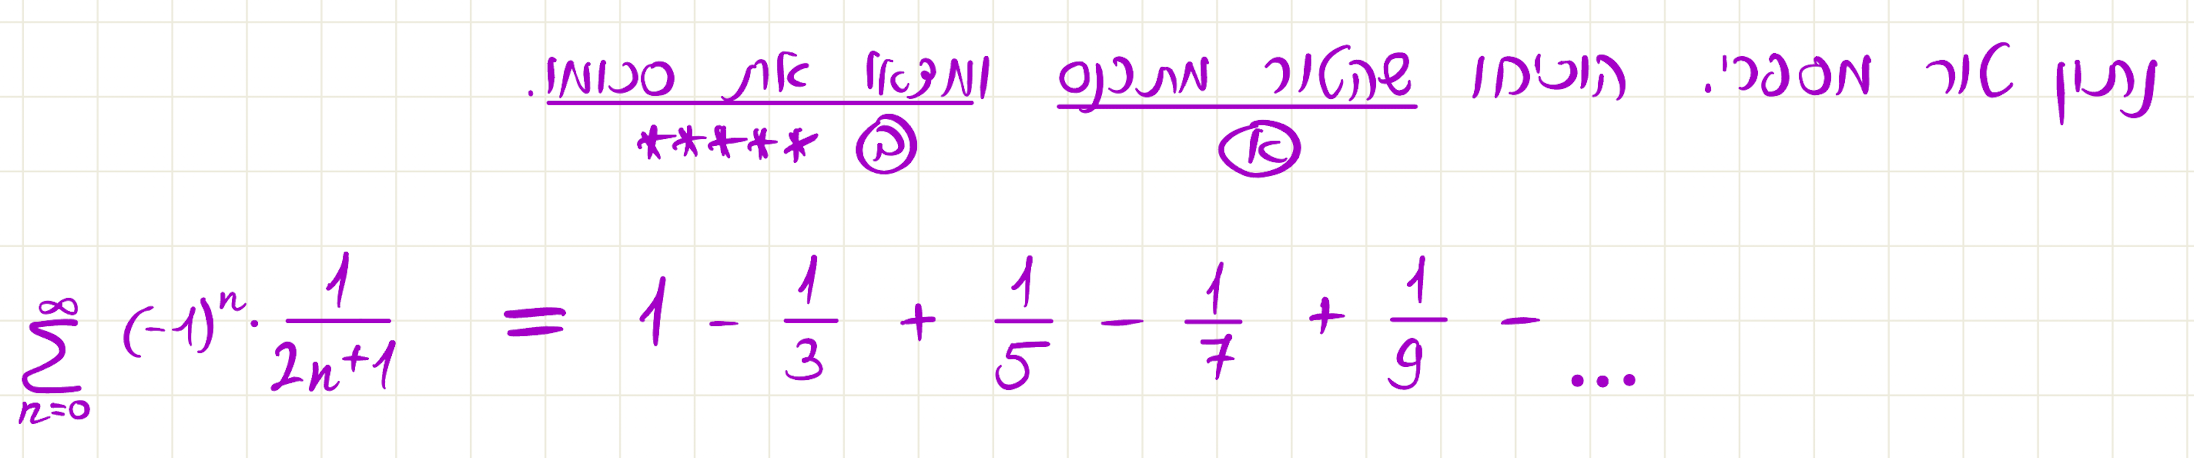 נתון טור מספרי. הוכיחו שהטור מתכנס ומצאו את סכומו.
א ב *****
∑_{n=0}^{∞} (-1)^n · 1/(2n+1) = 1 - 1/3 + 1/5 - 1/7 + 1/9 - ...